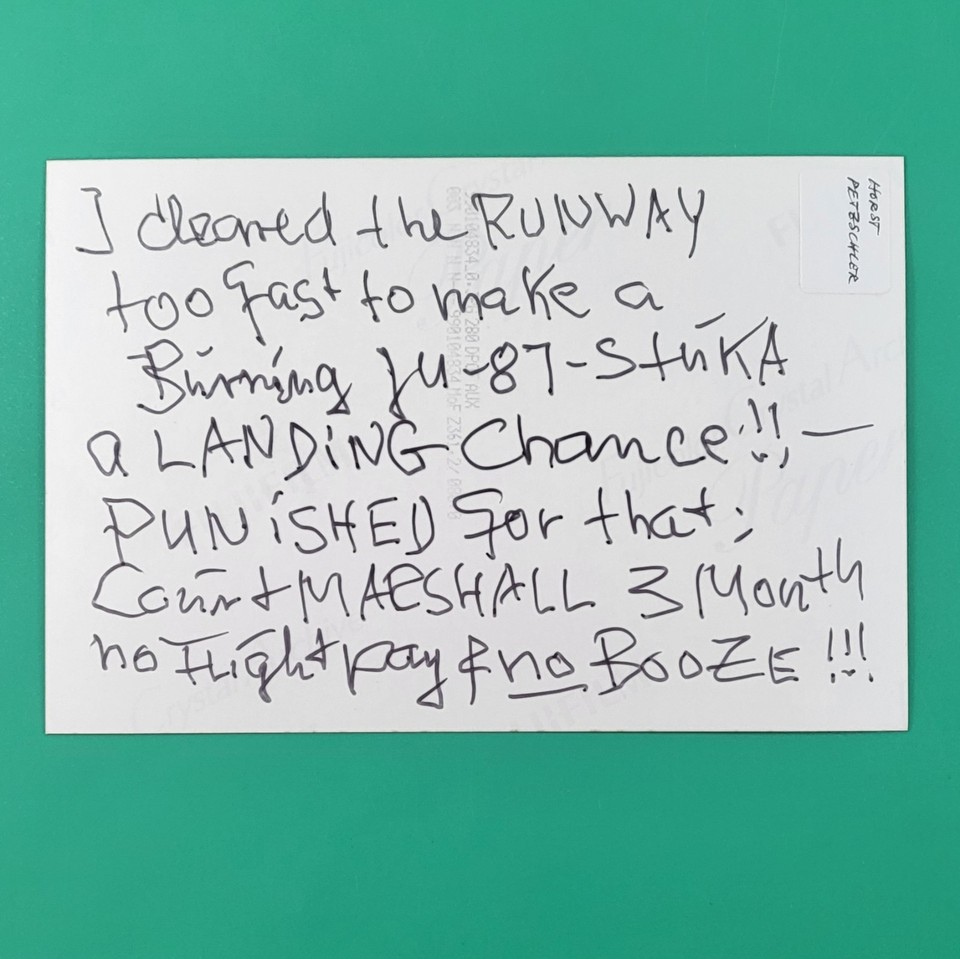 I cleared the RUNWAY
too fast to make a
Burning JU-87-StuKA
a LANDiNG Chance!!! —
PUNiSHED for that:
Court MARSHALL 3 Month
no Flight pay & no BOOZE !!!
HORST
PETZSCHLER